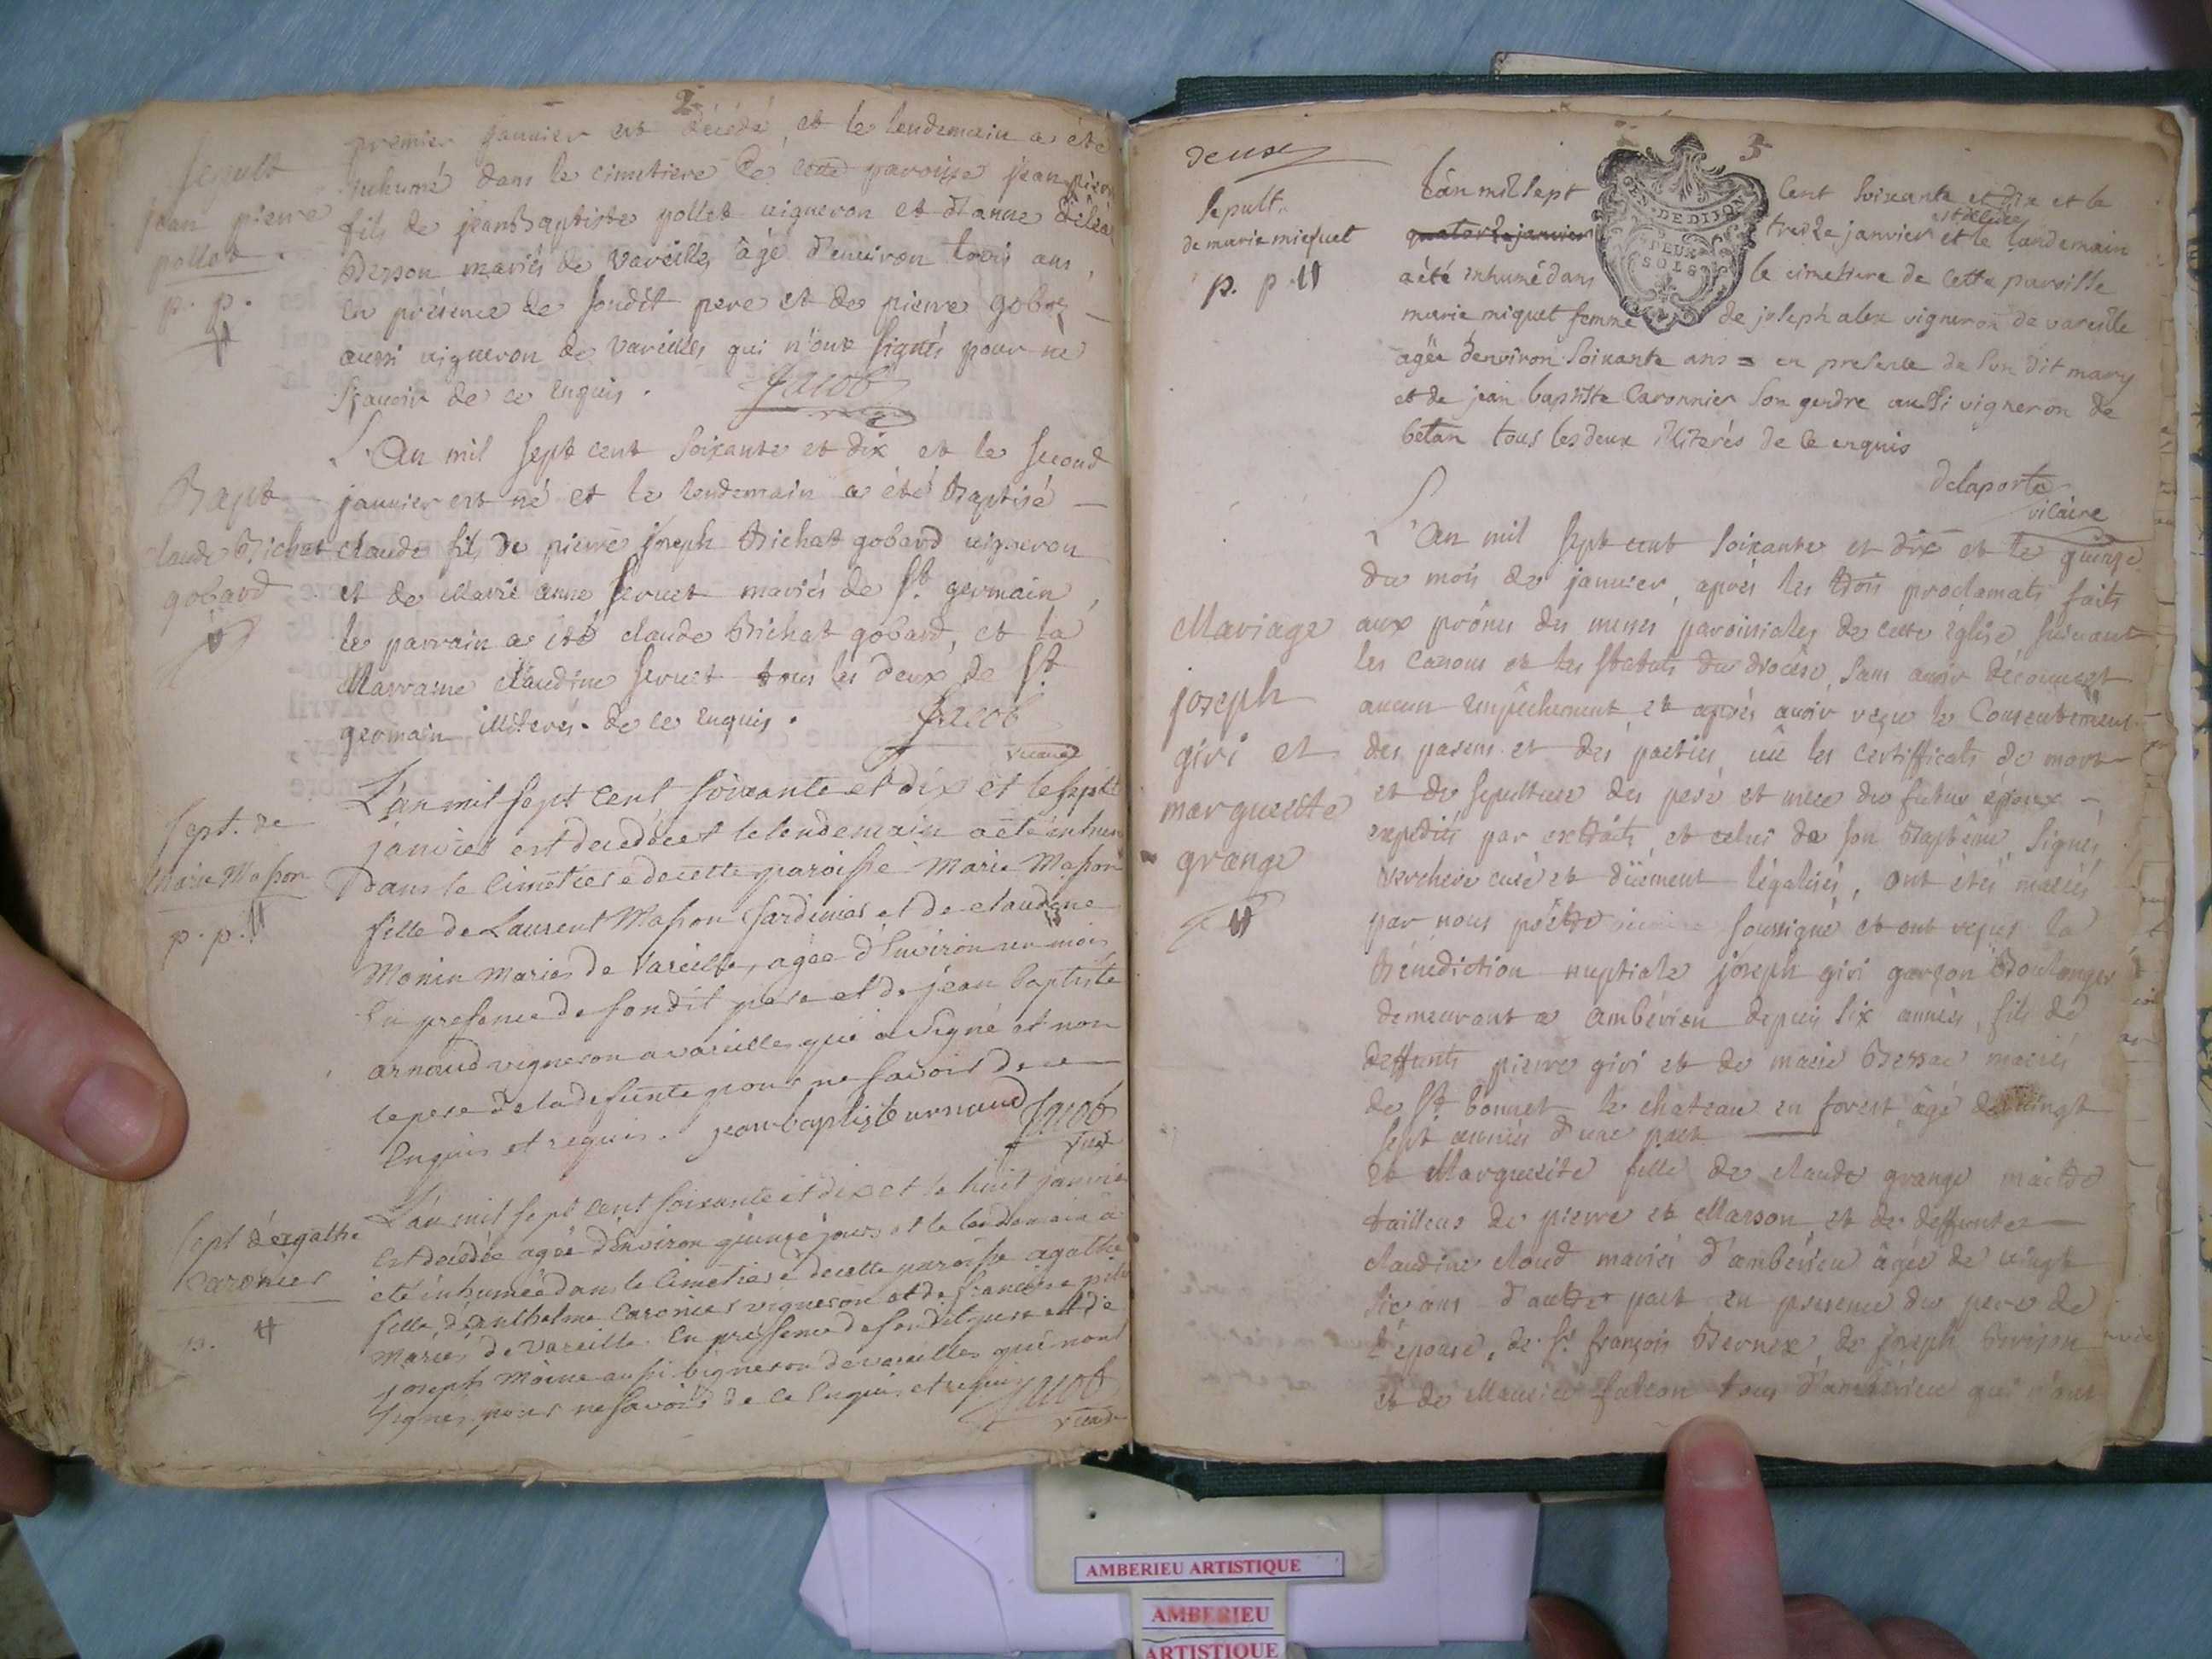 2
premier janvier est décédé et le lendemain a été
inhumé dans le cimetiere de cette paroisse jean pierre
fils de jean Baptiste pollet vigneron et d'anne
Besson mariés de Vareilles âgé d'environ trois ans,
en présence de sondit pere et de pierre
aussi vigneron de Vareilles qui n'ont signés pour ne
sçavoir de ce enquis. Jacob
sepult
jean pierre
pollet.
p. p.
L'An mil sept cent soixante et dix et le second
janvier est né et le lendemain a été Baptisé
claude fils de pierre joseph Bichat gobard vigneron
et de Marie anne servet mariés de St. germain,
le parrain a été claude Bichat gobard, et la
Marraine claudine servet tous les deux de St.
germain illiterés. de ce enquis. Jacob
vicaire
Bapt
claude Bichat
gobard
L'an mil sept cent soixante et dix et le sept
janvier est decedée et le lendemain a été inhumée
dans le cimetiere de cette paroisse Marie Masson
fille de Laurent Masson jardinier et de claudine
Monin mariés de Vareille, agée d'Environ un mois
En presence de sondit pere et de jean baptiste
arnaud vigneron a vareilles qui a signé et non
le pere de la defunte pour ne savoir de ce
Enquis et requis. jean baptiste arnaud Jacob
vicaire
sept. de
Marie Masson
p. p.
L'an mil sept cent soixante et dix et le huit janvier
est decedée agée d'Environ quinze jours et le lendemain a
été inhumée dans le cimetiere de cette paroisse agathe
fille d'anthelme Caronier vigneron et de francoise
mariés de Vareille. En presence de sondit pere et de
joseph Moine aussi vigneron de vareilles qui n'ont
signés pour ne savoir de ce Enquis et requis Jacob
vicaire
sept d'agathe
Caronier
p.
deux
3
GEN. DE DIJON
DEUX
SOLS
L'an mil sept cent soixante et dix et le
quatorze janvier treize janvier est decedée et le landemain
a été inhumé dans le cimetiere de cette parroisse
marie miquet femme de joseph alex vigneron de vareille
agée d'environ soixante ans = en presence de son dit mary
et de jean baptiste Caronnier son gendre aussi vigneron de
betan tous les deux illiterés de ce enquis
delaporte
vicaire
sepult.
de marie miequet
p. p.
L'An mil sept cent soixante et dix et le quinze
du mois de janvier, aprés les trois proclamats faits
aux prônes des messes paroissiales de cette église suivant
les canons et les statuts du diocèse, sans avoir découvert
aucun empêchement et aprés avoir reçu le Consentement
des parens et des parties, vû les certifficats de mort
et de sepulture des pere et mere du futur époux
expediés par extraits, et celui de son Baptême, signés
verchere curé et dûement légalisés, ont étés mariés
par nous prêtre vicaire soussigné et ont reçus la
Bénédiction nuptiale joseph giri garçon Boulanger
demeurant a Ambérieu depuis six années, fils de
deffunts pierre giri et de marie Bessac mariés
de St. bonnet le chateau en forest âgé de vingt
sept années d'une part
et Marguerite fille de claude grange maitre
tailleur de pierre et Masson et de deffunte
claudine cloud mariés d'ambérieu âgée de vingt
six ans d'autre part en presence du pere de
l'épouse, de Sr. françois Bernex, de joseph Brison
et de Maurice falcon tous d'ambérieu qui n'ont
Mariage
joseph
giri et
marguerite
grange
AMBERIEU ARTISTIQUE
AMBERIEU
ARTISTIQUE